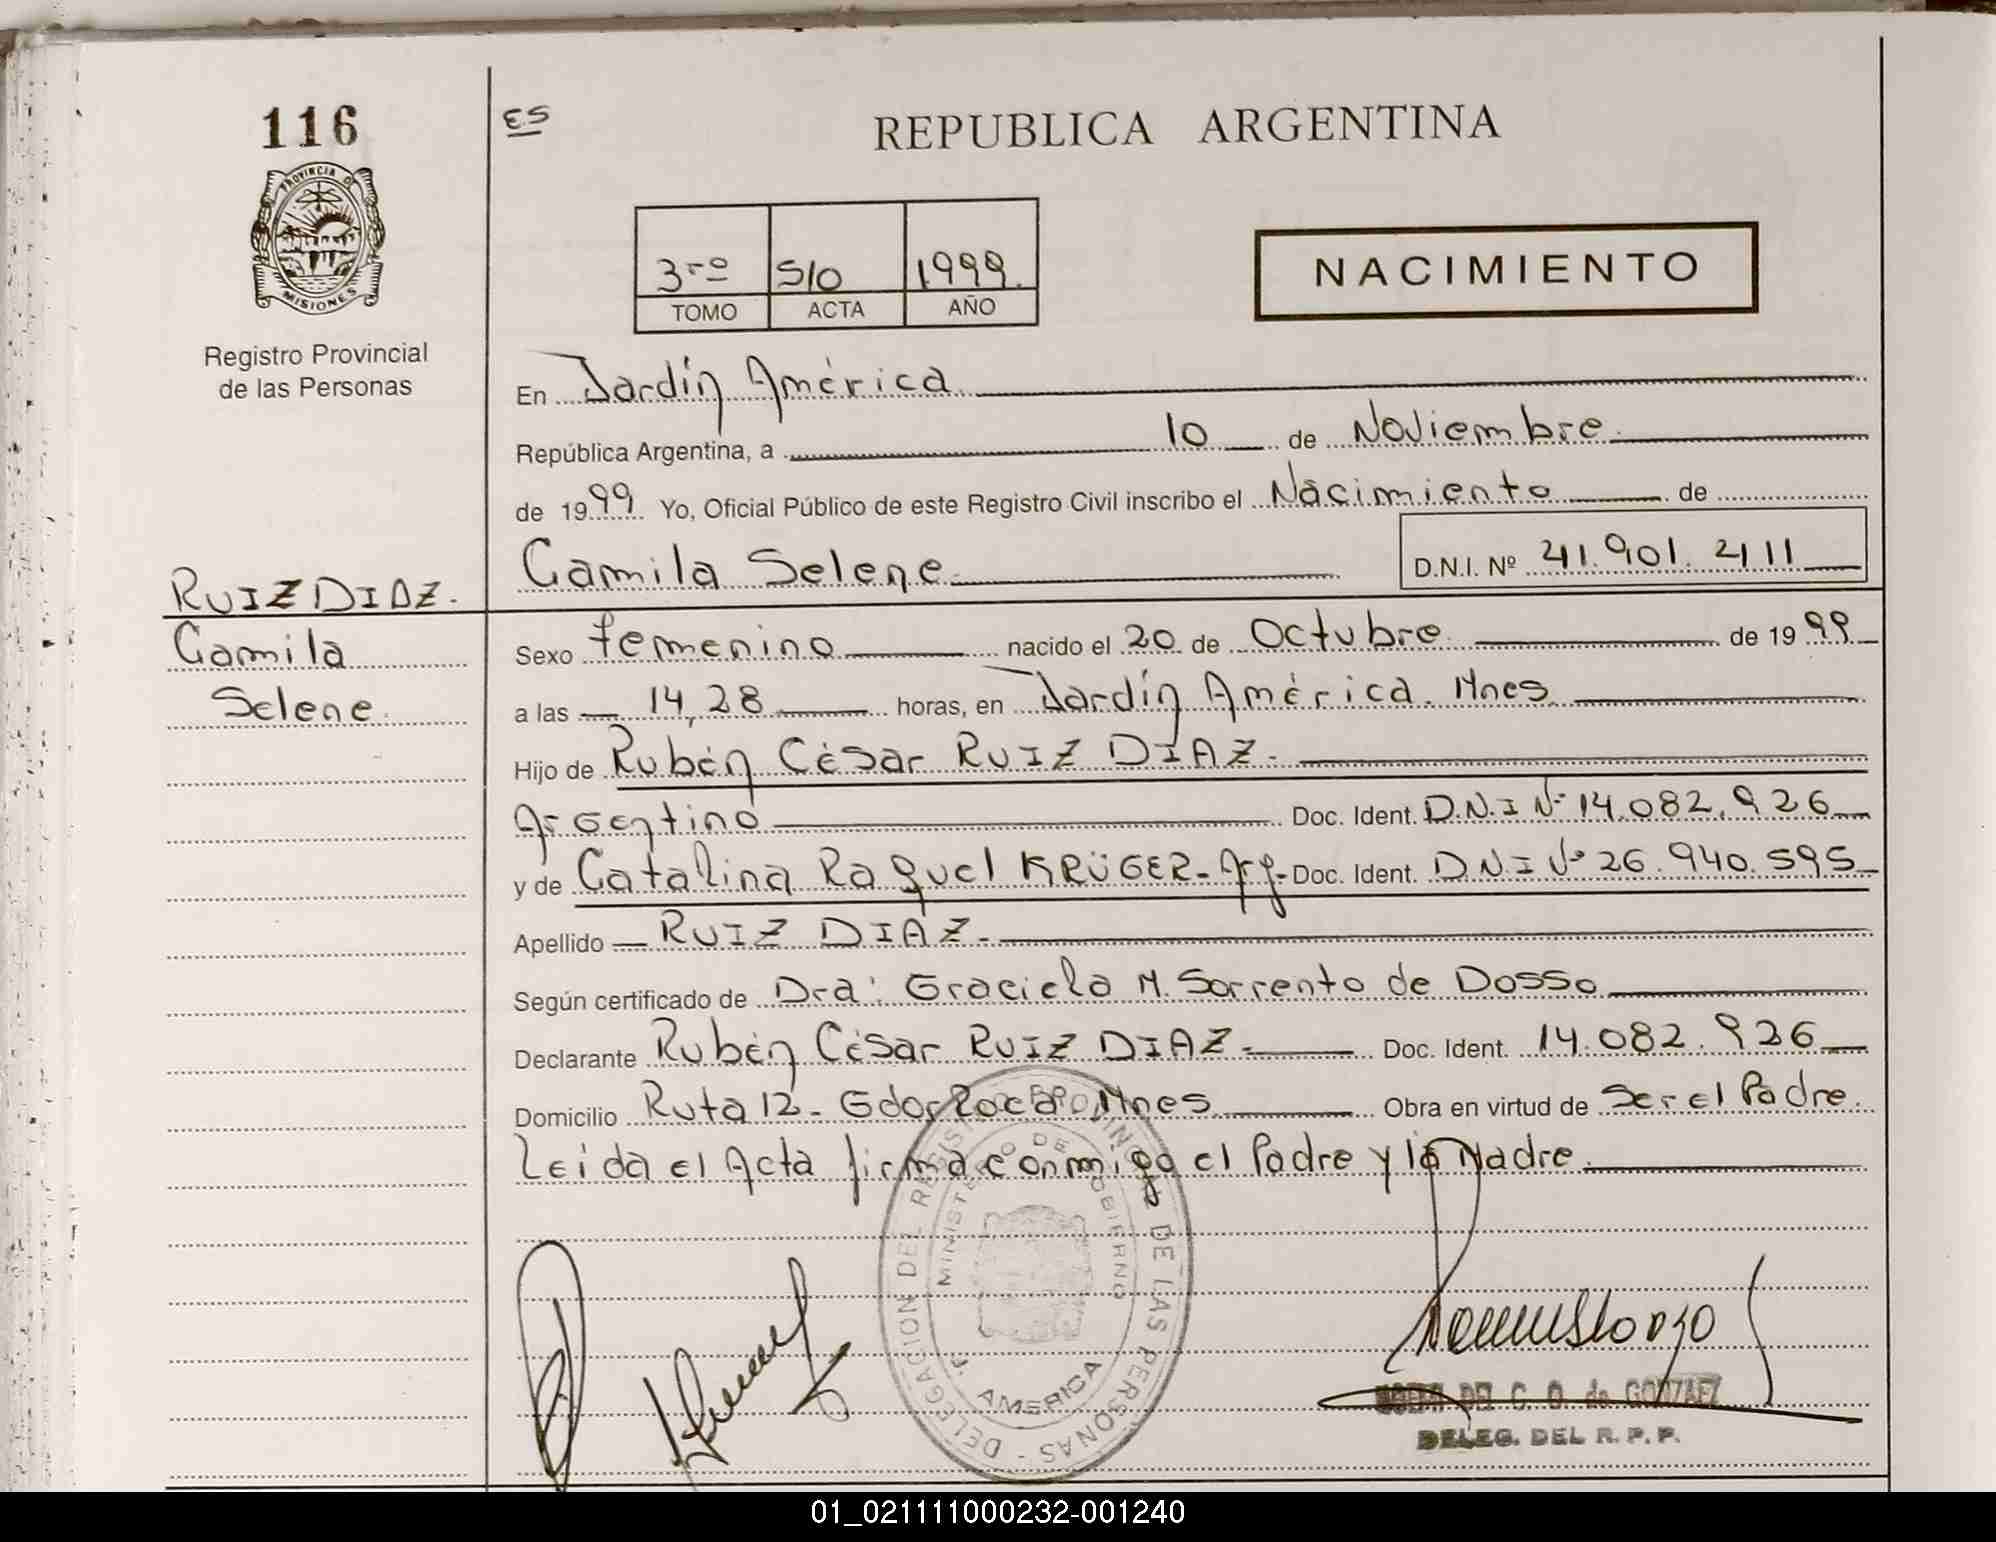 116
ES
REPUBLICA ARGENTINA
PROVINCIA DE
MISIONES
Registro Provincial
de las Personas
3ro 510 1999
TOMO ACTA AÑO
NACIMIENTO
En Jardín América
República Argentina, a 10 de Noviembre
de 1999 Yo, Oficial Público de este Registro Civil inscribo el Nacimiento de
Camila Selene D.N.I. Nº 41.901.411
RUIZ DIAZ.
Camila
Selene
Sexo femenino nacido el 20 de Octubre de 1999
a las 14,28 horas, en Jardín América. Mnes
Hijo de Rubén César RUIZ DIAZ.
Argentino Doc. Ident. D.N.I Nº 14.082.926
y de Catalina Raquel KRÜGER-Arg. Doc. Ident. D.N.I Nº 26.940.595
Apellido RUIZ DIAZ.
Según certificado de Dra: Graciela M. Sorrento de Dosso
Declarante Rubén César RUIZ DIAZ. Doc. Ident. 14.082.926
Domicilio Ruta 12- Gdor Roca, Mnes Obra en virtud de Ser el Padre
Leida el Acta firma conmigo el Padre y la Madre
DELEGACION DEL REGISTRO PROVINCIAL DE LAS PERSONAS
MINISTERIO DE GOBIERNO
J. AMERICA
DEL C. O. de GONZALEZ
DELEG. DEL R. P. P.
01_021111000232-001240